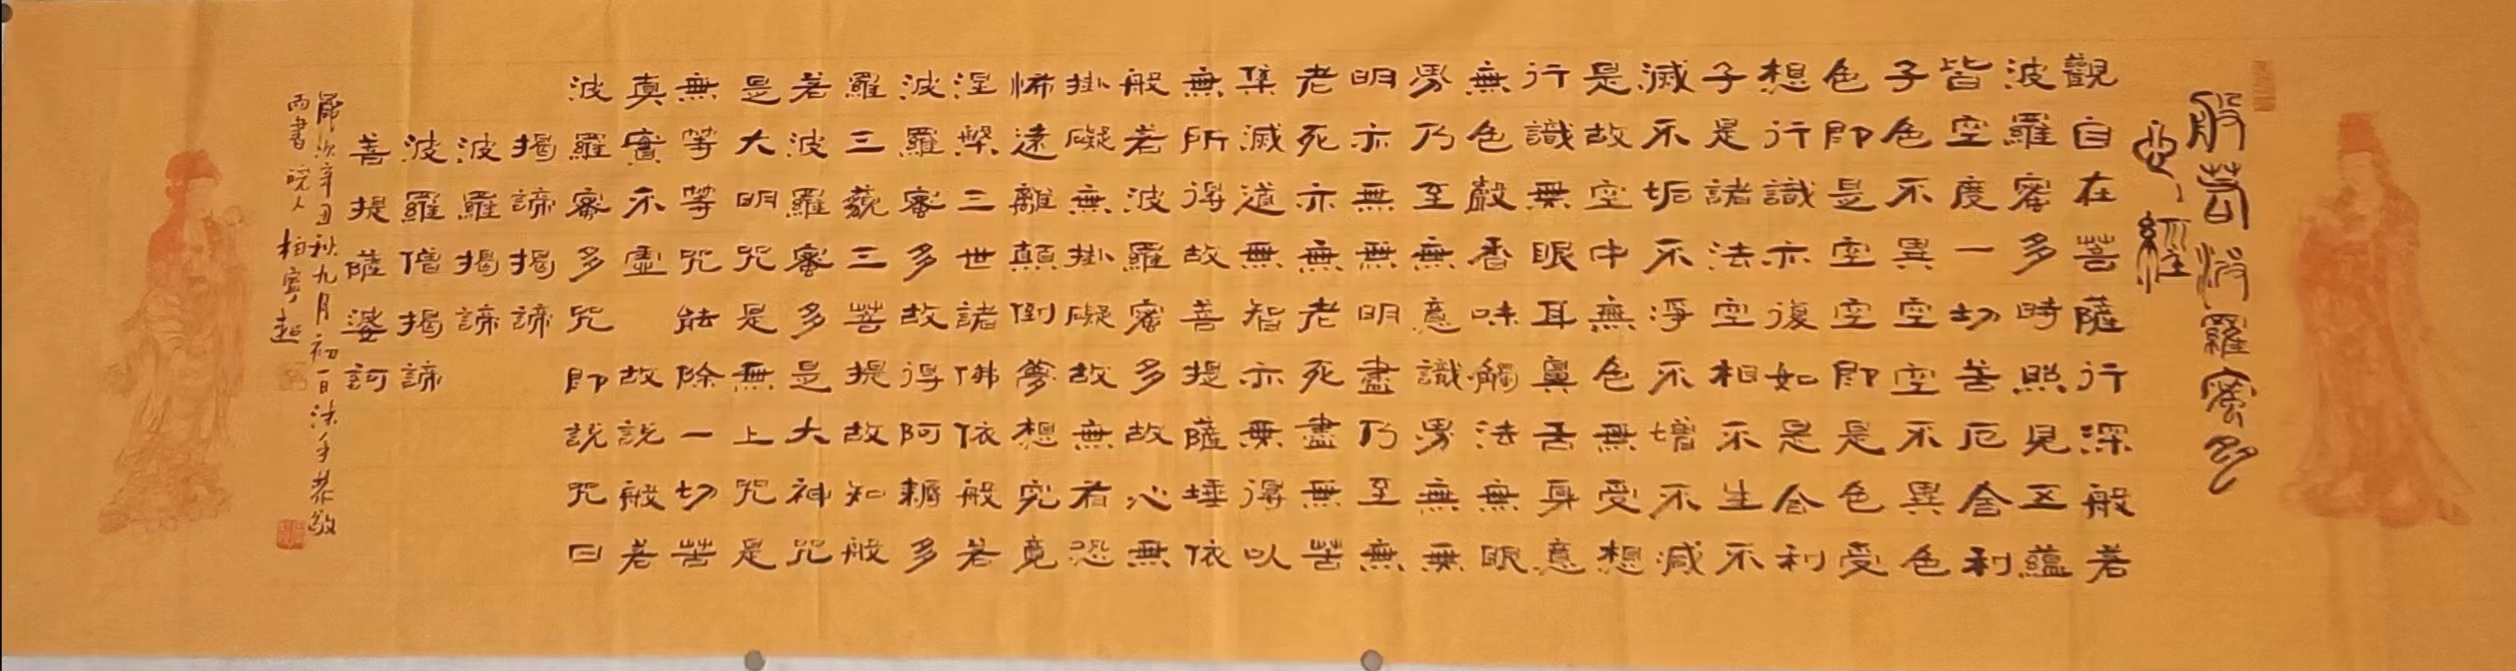 般若波羅蜜多
心經
觀自在菩薩行深般若
波羅蜜多時照見五蘊
皆空度一切苦厄舍利
子色不異空空不異色
色即是空空即是色受
想行識亦復如是舍利
子是諸法空相不生不
滅不垢不淨不增不減
是故空中無色無受想
行識無眼耳鼻舌身意
無色聲香味觸法無眼
界乃至無意識界無無
明亦無無明盡乃至無
老死亦無老死盡無苦
集滅道無智亦無得以
無所得故菩提薩埵依
般若波羅蜜多故心無
掛礙無掛礙故無有恐
怖遠離顛倒夢想究竟
涅槃三世諸佛依般若
波羅蜜多故得阿耨多
羅三藐三菩提故知般
若波羅蜜多是大神咒
是大明咒是無上咒是
無等等咒能除一切苦
真實不虛故說般若
波羅蜜多咒即說咒曰
揭諦揭諦
波羅揭諦
波羅僧揭諦
菩提薩婆訶
歲次辛丑秋九月初一日沐手恭敬
而書皖人柏寧超